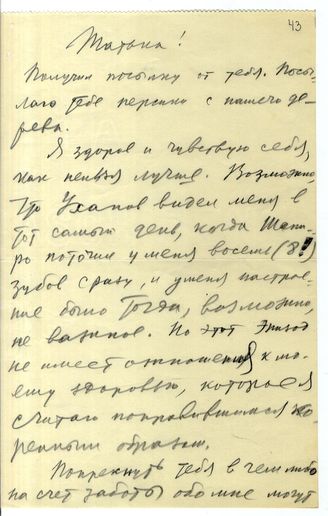 43
Татока!
Получил посылку от тебя. Посы-
лаю тебе персики с нашего де-
рева.
Я здоров и чувствую себя,
как нельзя лучше. Возможно,
что Уханов видел меня в
тот самый день, когда Шапи-
ро поточил у меня восемь (8!)
зубов сразу, и у меня настрое-
ние было тогда, возможно,
не важное. Но этот эпизод
не имеет отношения к мо-
ему здоровью, которое я
считаю поправившимся ко-
ренным образом.
Попрекнуть тебя в чем либо
на счет заботы обо мне могут